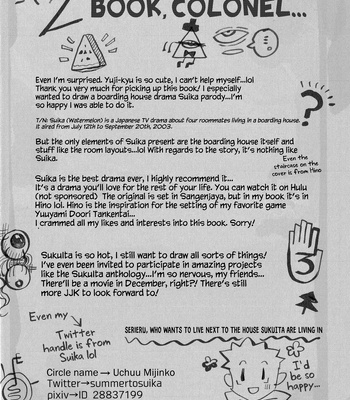 BOOK, COLONEL...
Even I'm surprised. Yuji-kyu is so cute, I can't help myself...lol
Thank you very much for picking up this book! I especially
wanted to draw a boarding house drama Suika parody...I'm
so happy I was able to do it.
T/N: Suika (Watermelon) is a Japanese TV drama about four roommates living in a boarding house.
It aired from July 12th to September 20th, 2003.
But the only elements of Suika present are the boarding house itself and
stuff like the room layouts...lol With regards to the story, it's nothing like
Suika.
Even the
staircase on the
cover is from Hino
Suika is the best drama ever, I highly recommend it...
It's a drama you'll love for the rest of your life. You can watch it on Hulu
(not sponsored) The original is set in Sangenjaya, but in my book it's in
Hino lol. Hino is the inspiration for the setting of my favorite game
Yuuyami Doori Tankentai...
I crammed all my likes and interests into this book. Sorry!
?
3
SukuIta is so hot, I still want to draw all sorts of things!
I've even been invited to participate in amazing projects
like the SukuIta anthology...I'm so nervous, my friends...
There'll be a movie in December, right?! There's still
more JJK to look forward to!
Even my
Twitter
handle is from
Suika lol
SERIERU, WHO WANTS TO LIVE NEXT TO THE HOUSE SUKUITA ARE LIVING IN
I'd
be so
happy...
Circle name → Uchuu Mijinko
Twitter→summertosuika
pixiv→ID 28837199